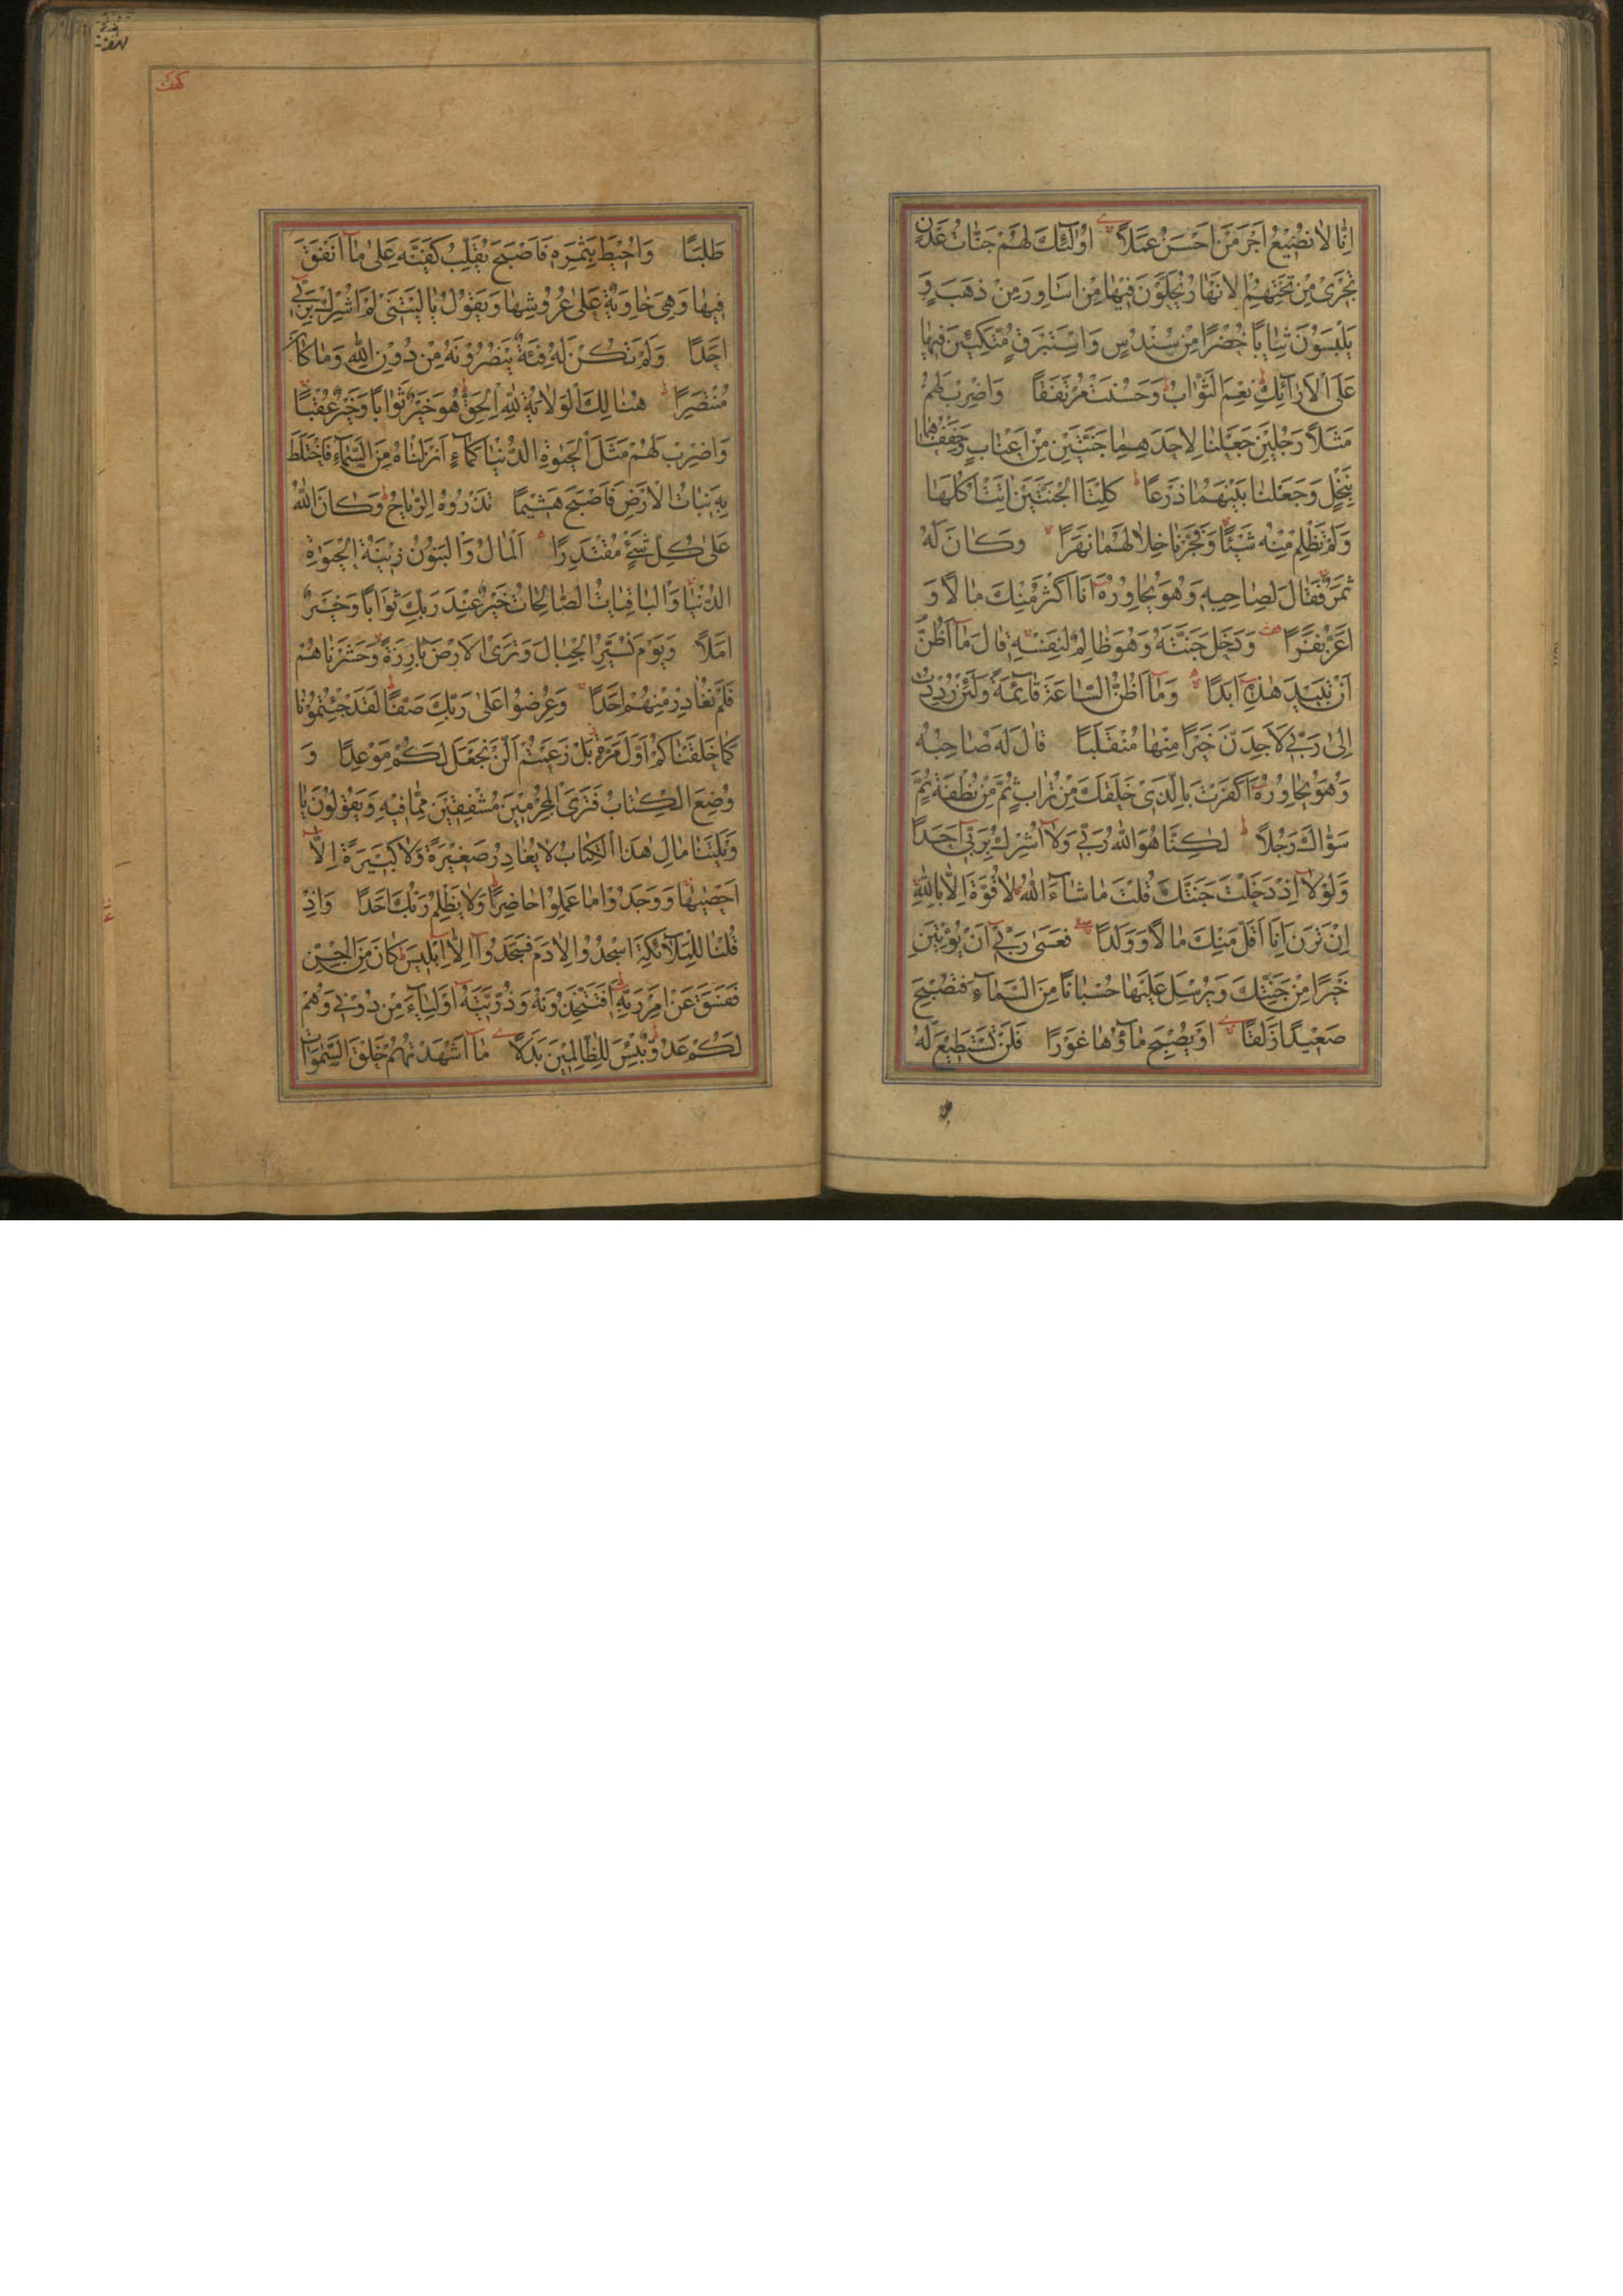 اِنَّا لَا نُضِيعُ اَجْرَ مَنْ اَحْسَنَ عَمَلًا اُولٰٓئِكَ لَهُمْ جَنَّاتُ عَدْنٍ
تَجْرِى مِنْ تَحْتِهِمُ الْاَنْهَارُ يُحَلَّوْنَ فِيهَا مِنْ اَسَاوِرَ مِنْ ذَهَبٍ وَ
يَلْبَسُونَ ثِيَابًا خُضْرًا مِنْ سُنْدُسٍ وَاِسْتَبْرَقٍ مُتَّكِئِينَ فِيهَا
عَلَى الْاَرَآئِكِ نِعْمَ الثَّوَابُ وَحَسُنَتْ مُرْتَفَقًا وَاضْرِبْ لَهُمْ
مَثَلًا رَجُلَيْنِ جَعَلْنَا لِاَحَدِهِمَا جَنَّتَيْنِ مِنْ اَعْنَابٍ وَحَفَفْنَاهُمَا
بِنَخْلٍ وَجَعَلْنَا بَيْنَهُمَا زَرْعًا كِلْتَا الْجَنَّتَيْنِ اٰتَتْ اُكُلَهَا
وَلَمْ تَظْلِمْ مِنْهُ شَيْئًا وَفَجَّرْنَا خِلَالَهُمَا نَهَرًا وَكَانَ لَهُ
ثَمَرٌ فَقَالَ لِصَاحِبِهِ وَهُوَ يُحَاوِرُهُ اَنَا اَكْثَرُ مِنْكَ مَالًا وَ
اَعَزُّ نَفَرًا وَدَخَلَ جَنَّتَهُ وَهُوَ ظَالِمٌ لِنَفْسِهِ قَالَ مَآ اَظُنُّ
اَنْ تَبِيدَ هٰذِهِ اَبَدًا وَمَآ اَظُنُّ السَّاعَةَ قَآئِمَةً وَلَئِنْ رُدِدْتُ
اِلٰى رَبِّى لَاَجِدَنَّ خَيْرًا مِنْهَا مُنْقَلَبًا قَالَ لَهُ صَاحِبُهُ
وَهُوَ يُحَاوِرُهُ اَكَفَرْتَ بِالَّذِى خَلَقَكَ مِنْ تُرَابٍ ثُمَّ مِنْ نُطْفَةٍ ثُمَّ
سَوّٰاكَ رَجُلًا لٰكِنَّا هُوَ اللّٰهُ رَبِّى وَلَآ اُشْرِكُ بِرَبِّى اَحَدًا
وَلَوْلَآ اِذْ دَخَلْتَ جَنَّتَكَ قُلْتَ مَا شَآءَ اللّٰهُ لَا قُوَّةَ اِلَّا بِاللّٰهِ
اِنْ تَرَنِ اَنَا اَقَلَّ مِنْكَ مَالًا وَوَلَدًا فَعَسٰى رَبِّى اَنْ يُؤْتِيَنِ
خَيْرًا مِنْ جَنَّتِكَ وَيُرْسِلَ عَلَيْهَا حُسْبَانًا مِنَ السَّمَآءِ فَتُصْبِحَ
صَعِيدًا زَلَقًا اَوْ يُصْبِحَ مَآؤُهَا غَوْرًا فَلَنْ تَسْتَطِيعَ لَهُ
كهف
طَلَبًا وَاُحِيطَ بِثَمَرِهِ فَاَصْبَحَ يُقَلِّبُ كَفَّيْهِ عَلٰى مَآ اَنْفَقَ
فِيهَا وَهِيَ خَاوِيَةٌ عَلٰى عُرُوشِهَا وَيَقُولُ يَا لَيْتَنِى لَمْ اُشْرِكْ بِرَبِّى
اَحَدًا وَلَمْ تَكُنْ لَهُ فِئَةٌ يَنْصُرُونَهُ مِنْ دُونِ اللّٰهِ وَمَا كَانَ
مُنْتَصِرًا هُنَالِكَ الْوَلَايَةُ لِلّٰهِ الْحَقِّ هُوَ خَيْرٌ ثَوَابًا وَخَيْرٌ عُقْبًا
وَاضْرِبْ لَهُمْ مَثَلَ الْحَيٰوةِ الدُّنْيَا كَمَآءٍ اَنْزَلْنَاهُ مِنَ السَّمَآءِ فَاخْتَلَطَ
بِهِ نَبَاتُ الْاَرْضِ فَاَصْبَحَ هَشِيمًا تَذْرُوهُ الرِّيَاحُ وَكَانَ اللّٰهُ
عَلٰى كُلِّ شَىْءٍ مُقْتَدِرًا اَلْمَالُ وَالْبَنُونُ زِينَةُ الْحَيٰوةِ
الدُّنْيَا وَالْبَاقِيَاتُ الصَّالِحَاتُ خَيْرٌ عِنْدَ رَبِّكَ ثَوَابًا وَخَيْرٌ
اَمَلًا وَيَوْمَ نُسَيِّرُ الْجِبَالَ وَتَرَى الْاَرْضَ بَارِزَةً وَحَشَرْنَاهُمْ
فَلَمْ نُغَادِرْ مِنْهُمْ اَحَدًا وَعُرِضُوا عَلٰى رَبِّكَ صَفًّا لَقَدْ جِئْتُمُونَا
كَمَا خَلَقْنَاكُمْ اَوَّلَ مَرَّةٍ بَلْ زَعَمْتُمْ اَلَّنْ نَجْعَلَ لَكُمْ مَوْعِدًا وَ
وُضِعَ الْكِتَابُ فَتَرَى الْمُجْرِمِينَ مُشْفِقِينَ مِمَّا فِيهِ وَيَقُولُونَ يَا
وَيْلَتَنَا مَالِ هٰذَا الْكِتَابِ لَا يُغَادِرُ صَغِيرَةً وَلَا كَبِيرَةً اِلَّآ
اَحْصٰيهَا وَوَجَدُوا مَا عَمِلُوا حَاضِرًا وَلَا يَظْلِمُ رَبُّكَ اَحَدًا وَاِذْ
قُلْنَا لِلْمَلَآئِكَةِ اسْجُدُوا لِاٰدَمَ فَسَجَدُوآ اِلَّآ اِبْلِيسَ كَانَ مِنَ الْجِنِّ
فَفَسَقَ عَنْ اَمْرِ رَبِّهِ اَفَتَتَّخِذُونَهُ وَذُرِّيَّتَهُ اَوْلِيَآءَ مِنْ دُونِى وَهُمْ
لَكُمْ عَدُوٌّ بِئْسَ لِلظَّالِمِينَ بَدَلًا مَآ اَشْهَدْتُهُمْ خَلْقَ السَّمٰوَاتِ